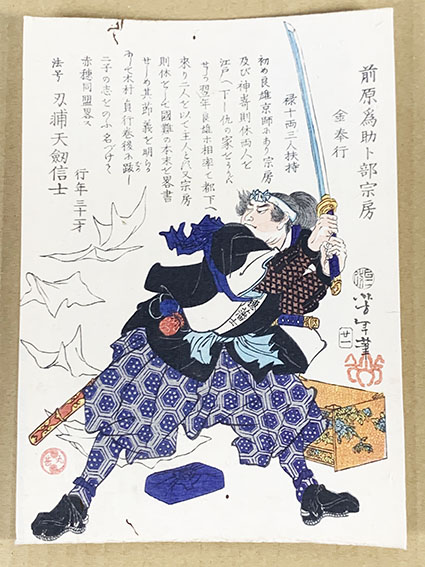 前原為助卜部宗房
金奉行
禄十両三人扶持
初め良雄京師にあり宗房
及び神﨑則休両人を
江戸へ下し仇の家をうかゞは
せり翌年良雄相率て都下へ
来り二人を以て主人と
則休をして國難の本末を畧書
せしめ其節義を明らか
にして木村貞行巻後に跋し
二子の志をのぶ名づけて
赤穂同盟畧ス
行年三十一才
法号 刃補天劔信士
芳年筆
廿一